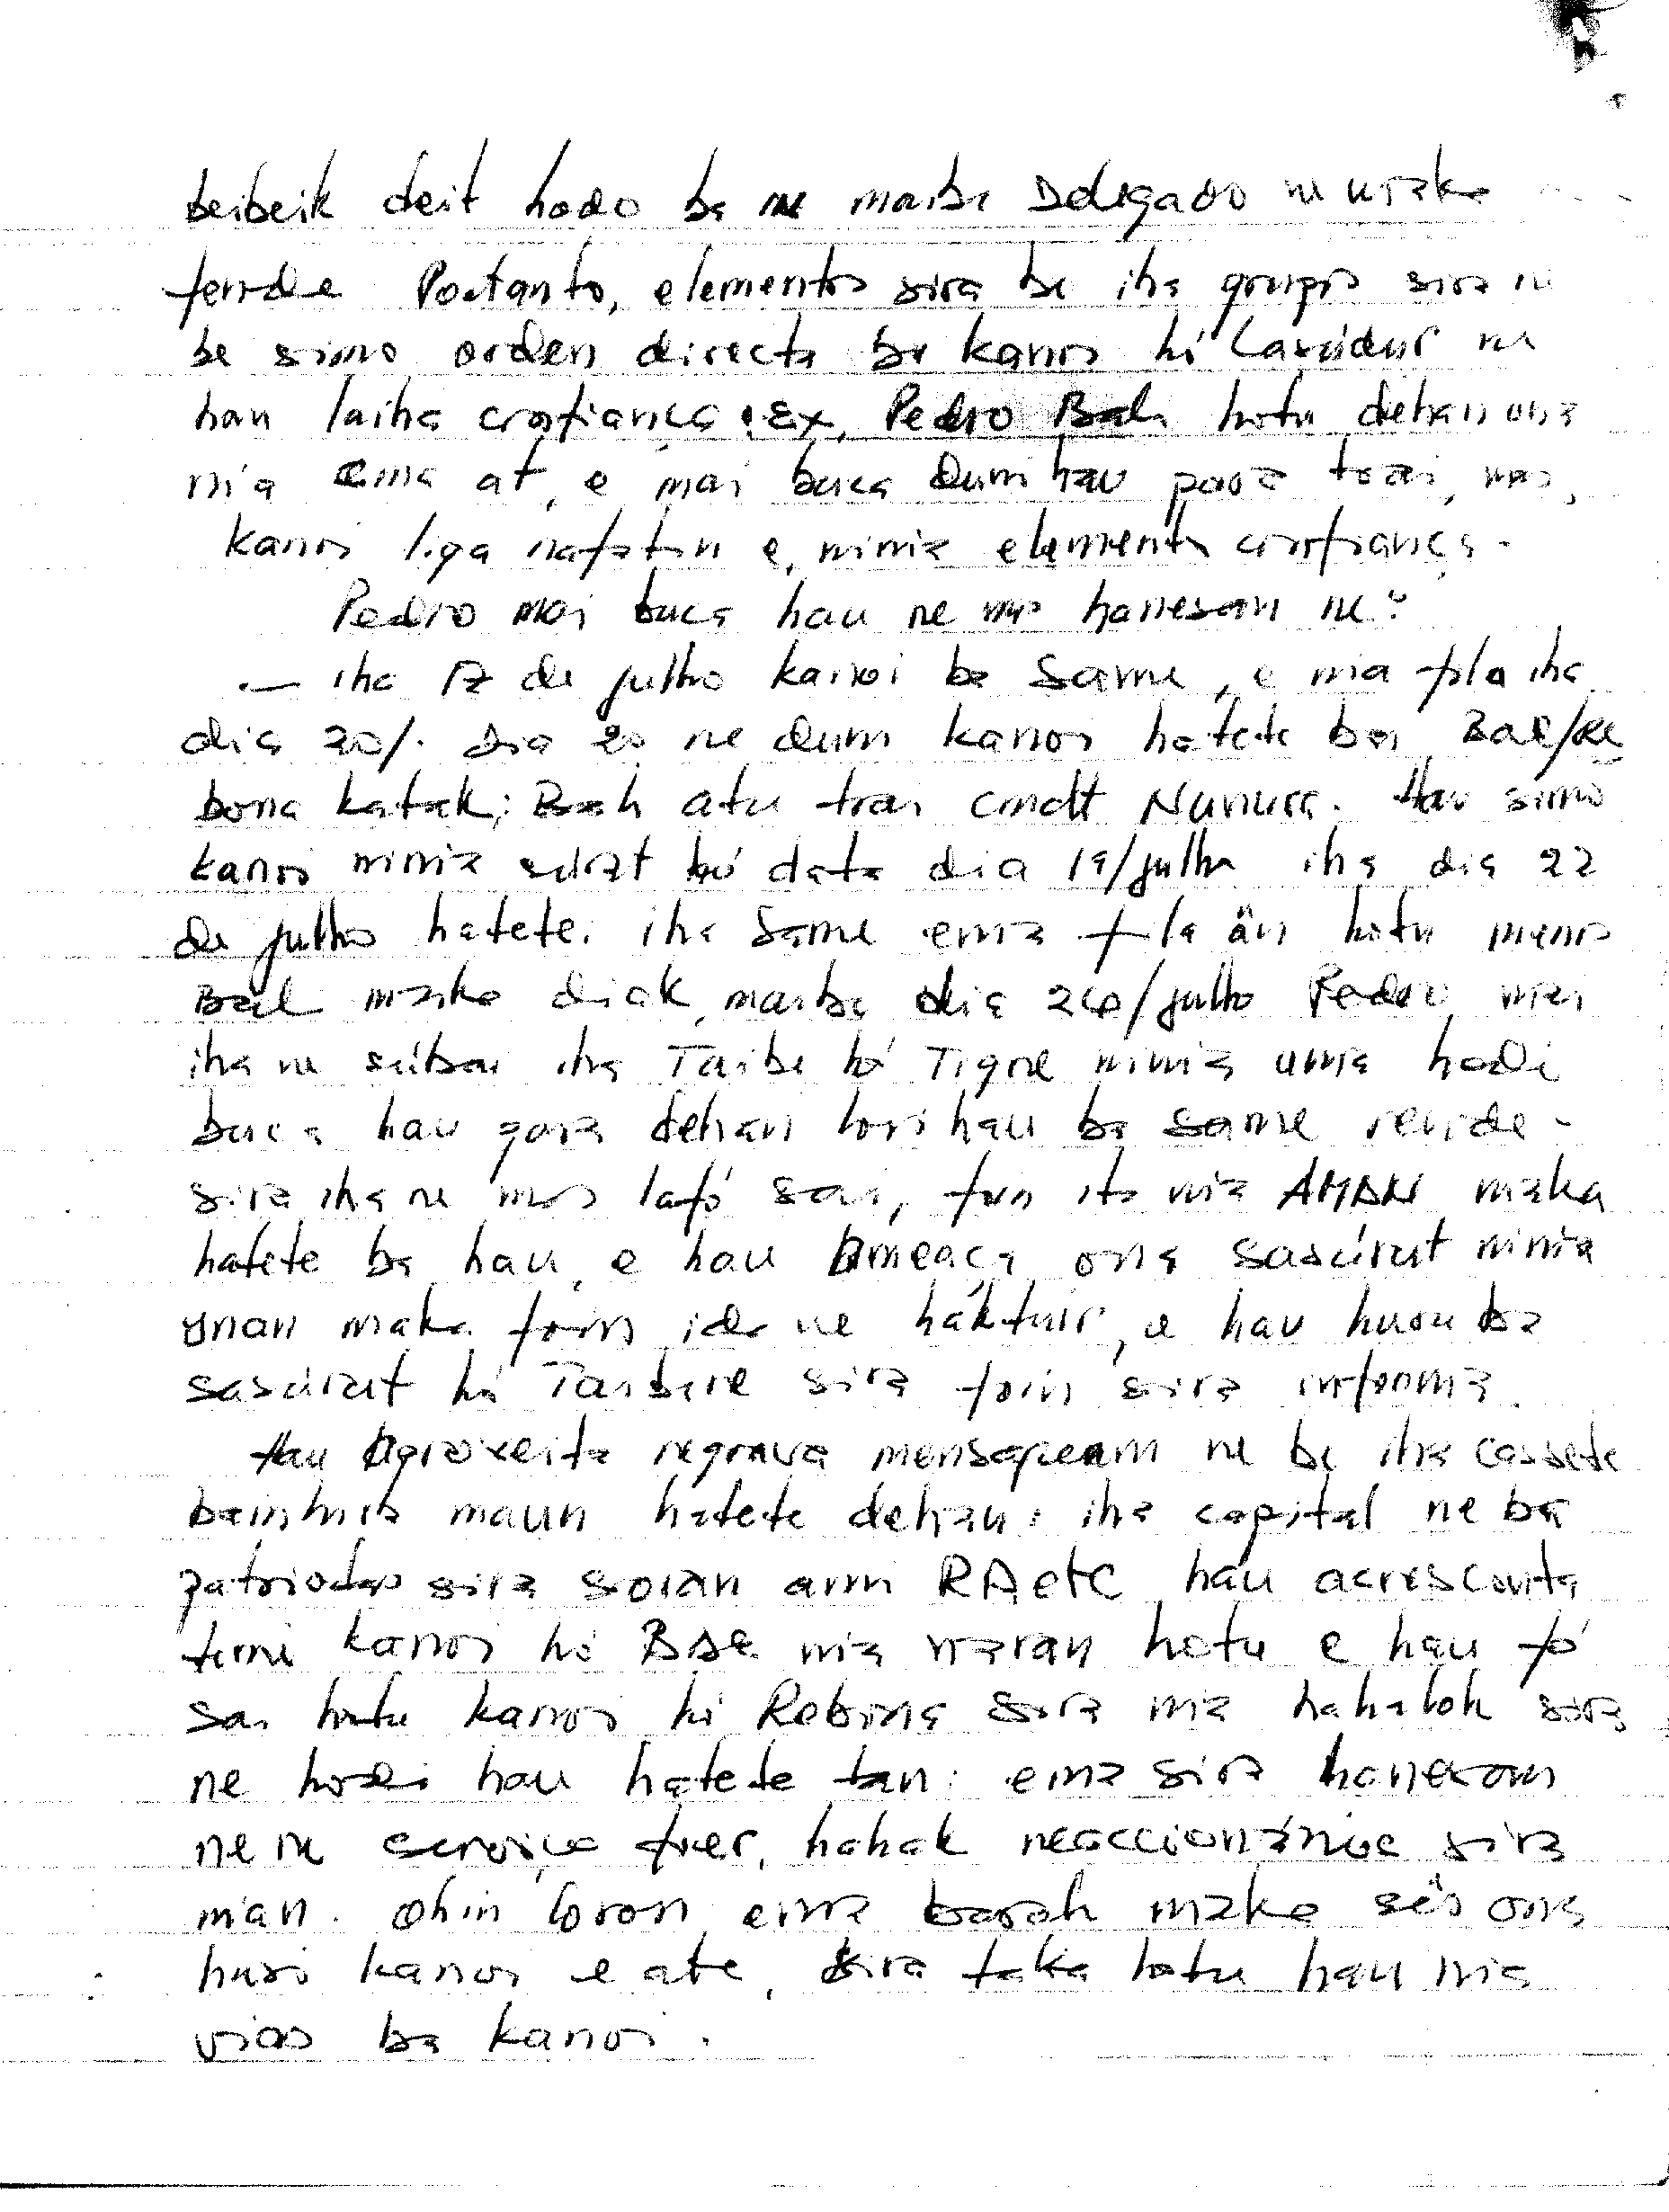 beibeik deit hodo ba ne maibe Delegado ne uraka
fende Portanto, elementos sira be iha grupos sira ne
be simo orden directa ba kanoi hó Lasúdur ne
hau laiha confiança. Ex, Pedro Bal hotu dehan ona
nia ema at, e mai buca dum hau para trai, mas,
kanoi liga nafatin e, ninia elemento confiança.
Pedro mai buca hau ne mos hanesan ne:
— iha 17 de julho kanoi ba Same, e nia fila iha
dia 20/. dia 20 ne dum kanoi hatete ba Bal/Re
bona katak: Bal atu trai cmdt Nunura. Hau simo
kanoi ninia súrat hó data dia 19/julho iha dia 22
de julho hatete: iha Same ema fila än hotu menos
Bal maka diak, maibe dia 24/julho Pedro mai
iha ne súbar iha Taibe hó Tigre ninia uma hodi
buca hau para dehan lori hau ba same rende-
sira iha ne mos lafó sai, fun ita nia AMDN maka
hatete ba hau, e hau ameaça ona sasúrut ninia
onan maka foin ida ne háktuir, e hau husu ba
sasúrut hó Taibere sira foin sira informa.
Hau aproveita regrava mensagem ne be iha cassete
bainhira maun hatete dehan: iha capital neba
patriotas sira soran arm RA etc hau acrescenta
temi kanoi hó BAE nia naran hotu e hau fó
sai hotu kanoi hó Rebona sira nia hahalok sira
ne hodi hau hatete tan: ema sira hanesan
ne ne serviço fuer, hahok reaccionários sira
nian. Ohin loron ema barak maka sés ona
husi kanoi e ate, sira taka hotu hau nia
vias ba kanoi.